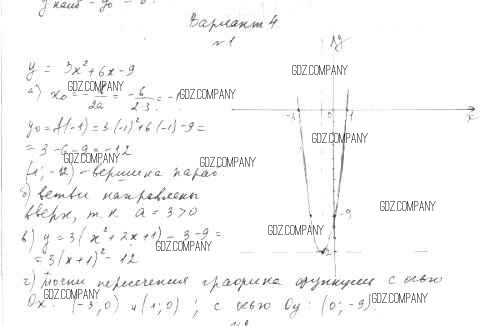 y наиб = y₀ = 0
Вариант 4
№1
y = 3x² + 6x - 9
а) x₀ = -b/2a = -6/2·3 = -1
y₀ = f(-1) = 3·(-1)² + 6(-1) - 9 =
= 3 - 6 - 9 = -12
(-1; -12) - вершина парао.
б) ветви направлены
вверх, т.к. a = 3 > 0
в) y = 3(x² + 2x + 1) - 3 - 9 =
= 3(x+1)² - 12
г) точки пересечения графика функции с осью
Ox: (-3; 0) и (1; 0) ; с осью Oy: (0; -9).
y
x
1
-9
GDZ.COMPANY
GDZ.COMPANY
GDZ.COMPANY
GDZ.COMPANY
GDZ.COMPANY
GDZ.COMPANY
GDZ.COMPANY
GDZ.COMPANY
GDZ.COMPANY
GDZ.COMPANY
GDZ.COMPANY
GDZ.COMPANY